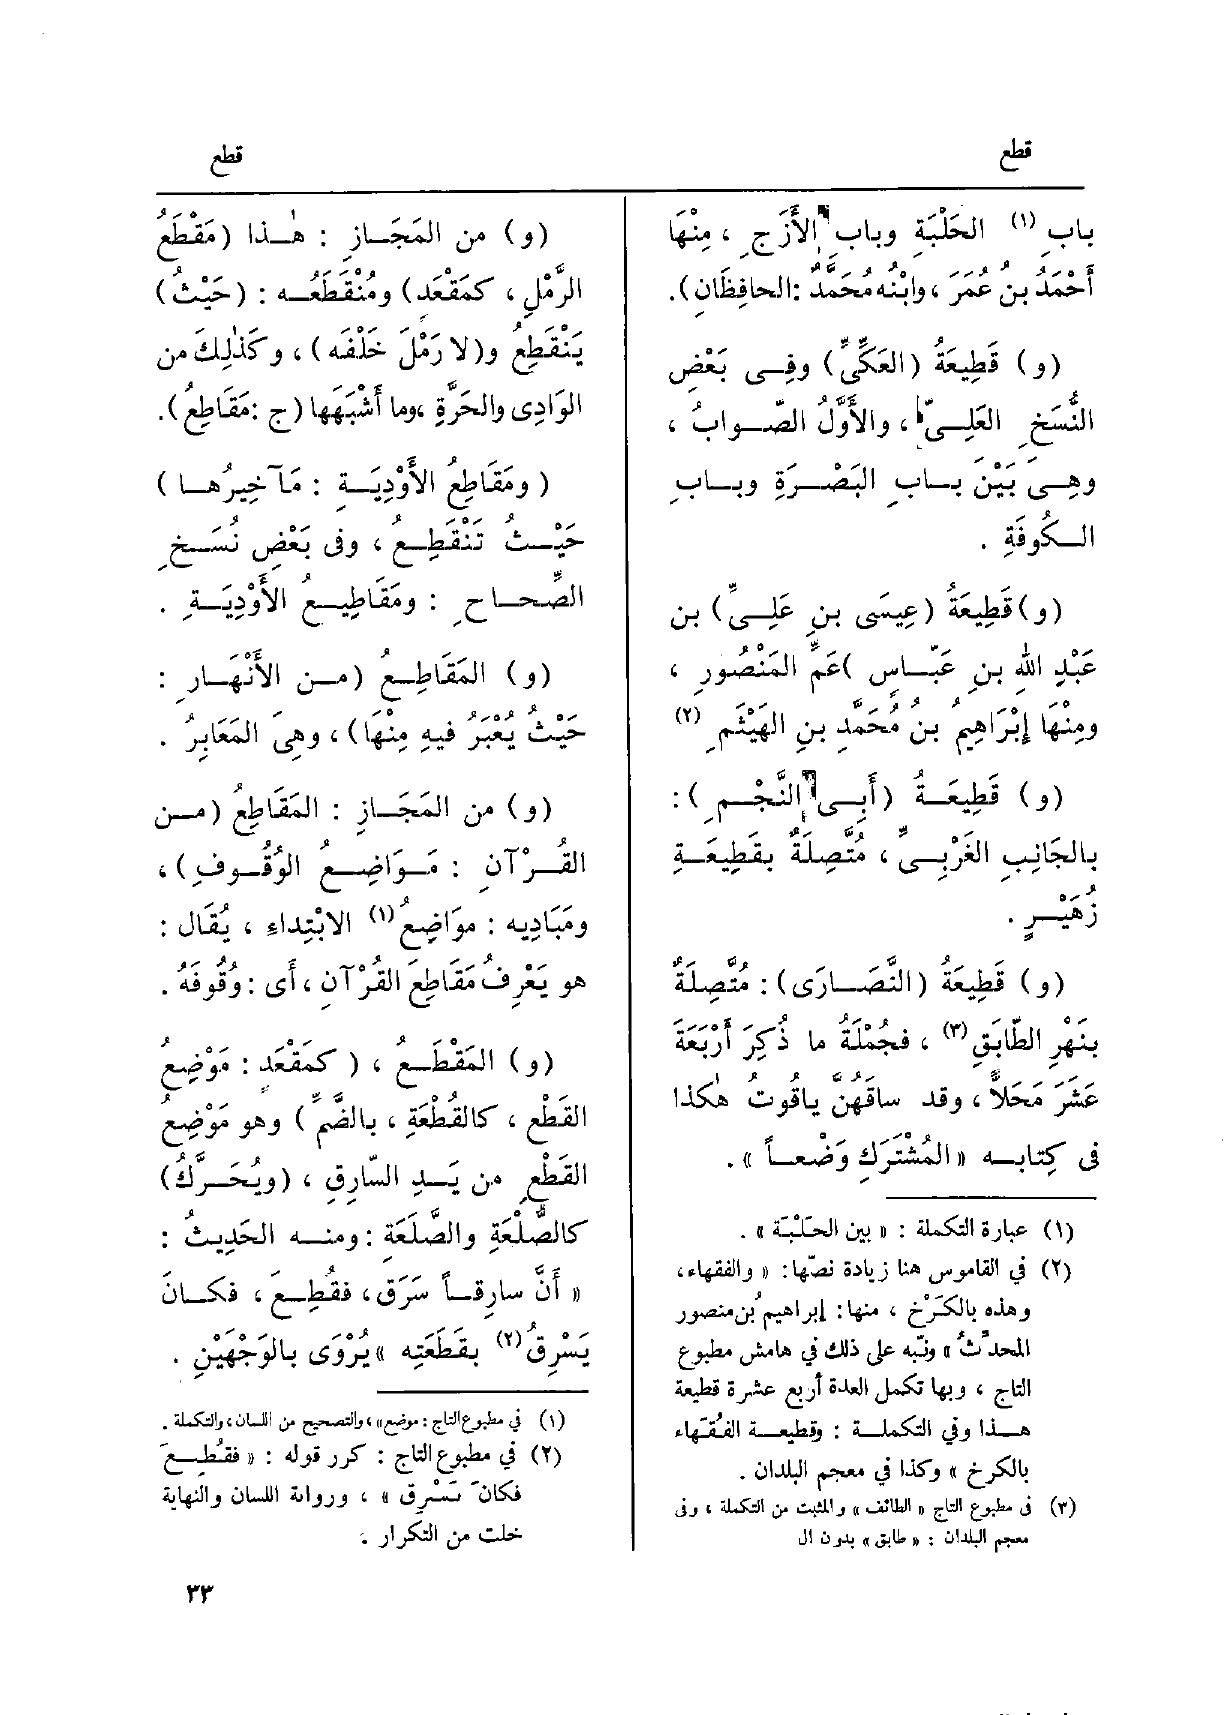 قطع
قطع
باب (١) الحَلْبَةِ وبابِ الأَزَجِ ، مِنْهَا
أَحْمَدُ بنُ عُمَرَ ، وابْنُه مُحَمَّدٌ :الحافِظَانِ).
(و) قَطِيعَةُ (العَكِّيِّ) وفِى بَعْضِ
النُّسَخِ العَلِىّ ، والأَوَّلُ الصّوابُ ،
وهِىَ بَيْنَ بابِ البَصْرَةِ وبابِ
الكُوفَةِ .
(و) قَطِيعَةُ (عِيسَى بنِ عَلِىِّ) بن
عَبْدِ اللهِ بنِ عَبّاسٍ )عَمِّ المَنْصُورِ ،
ومِنْهَا إِبْرَاهِيمُ بنُ مُحَمَّدِ بنِ الهَيْثَمِ (٢)
(و) قَطِيعَةُ (أَبِى النَّجْمِ):
بالجَانِبِ الغَرْبِىِّ ، مُتَّصِلَةٌ بقَطِيعَةِ
زُهَيْرٍ .
(و) قَطِيعَةُ (النَّصَارَى) : مُتَّصِلَةٌ
بنَهْرِ الطّابَقِ (٣) ، فجُمْلَةُ ما ذُكِرَ أَرْبَعَةَ
عَشَرَ مَحَلاًّ ، وقد ساقَهُنَّ ياقُوتُ هٰكذا
فى كِتابِه «المُشْتَرَكِ وَضْعاً » .
(١) عبارة التكملة : « بين الحَلْبَة » .
(٢) في القاموس هنا زيادة نصّها: « والفقهاء،
وهذه بالكَرْخ ، منها: إبراهيمُ بن منصور
المحدّثُ » ونبّه على ذلك في هامش مطبوع
التاج ، وبها تكمل العدة أربع عشرة قطيعة
هذا وفي التكملة : وقطيعة الفُقَهاء
بالكرخ » وكذا في معجم البلدان .
(٣) فى مطبوع التاج « الطائف » والمثبت من التكملة ، وفى
معجم البلدان : « طابق » بدون ال
(و) من المَجَازِ : هٰذا (مَقْطَعُ
الرَّمْلِ ، كمَقْعَد) ومُنْقَطَعُه : (حَيْثُ)
يَنْقَطِعُ و(لا رَمْلَ خَلْفَه) ، وكَذٰلِكَ من
الوَادِى والحَرَّةِ ،وما أَشْبَهَها (ج :مَقَاطِعُ).
(ومَقَاطِعُ الأَوْدِيَةِ : مَآخِيرُها )
حَيْثُ تَنْقَطِعُ ، وفى بَعْضِ نُسَخِ
الصِّحاحِ : ومَقَاطِيعُ الأَوْدِيَةِ .
(و) المَقَاطِعُ (من الأَنْهَارِ :
حَيْثُ يُعْبَرُ فيهِ مِنْهَا) ، وهِىَ المَعَابِرُ .
(و) من المَجَازِ : المَقَاطِعُ (من
القُرْآنِ : مَوَاضِعُ الوُقُوفِ) ،
ومَبَادِيه : موَاضِعُ (١) الابْتِداءِ ، يُقَال :
هو يَعْرِفُ مَقَاطِعَ القُرْآنِ ، أَى : وُقُوفَهُ .
(و) المَقْطَعُ ، ( كمَقْعَد : مَوْضِعُ
القَطْعِ ، كالقُطْعَةِ ، بالضَّمِّ ) وهو مَوْضِعُ
القَطْعِ من يَدِ السّارِقِ ، (ويُحَرَّكُ)
كالصُّلْعَةِ والصَّلَعَةِ : ومنه الحَدِيثُ :
« أَنَّ سارِقاً سَرَق ، فقُطِعَ ، فكانَ
يَسْرِقُ (٢) بقَطَعَتِه » يُرْوَى بالوَجْهَيْنِ .
(١) في مطبوع التاج : موضع» ، والتصحيح من اللسان ، والتكملة .
(٢) في مطبوع التاج : كرر قوله : « فقُطِعَ
فكانَ يَسْرِق » ، ورواية اللسان والنهاية
خلت من التكرار .
٣٣